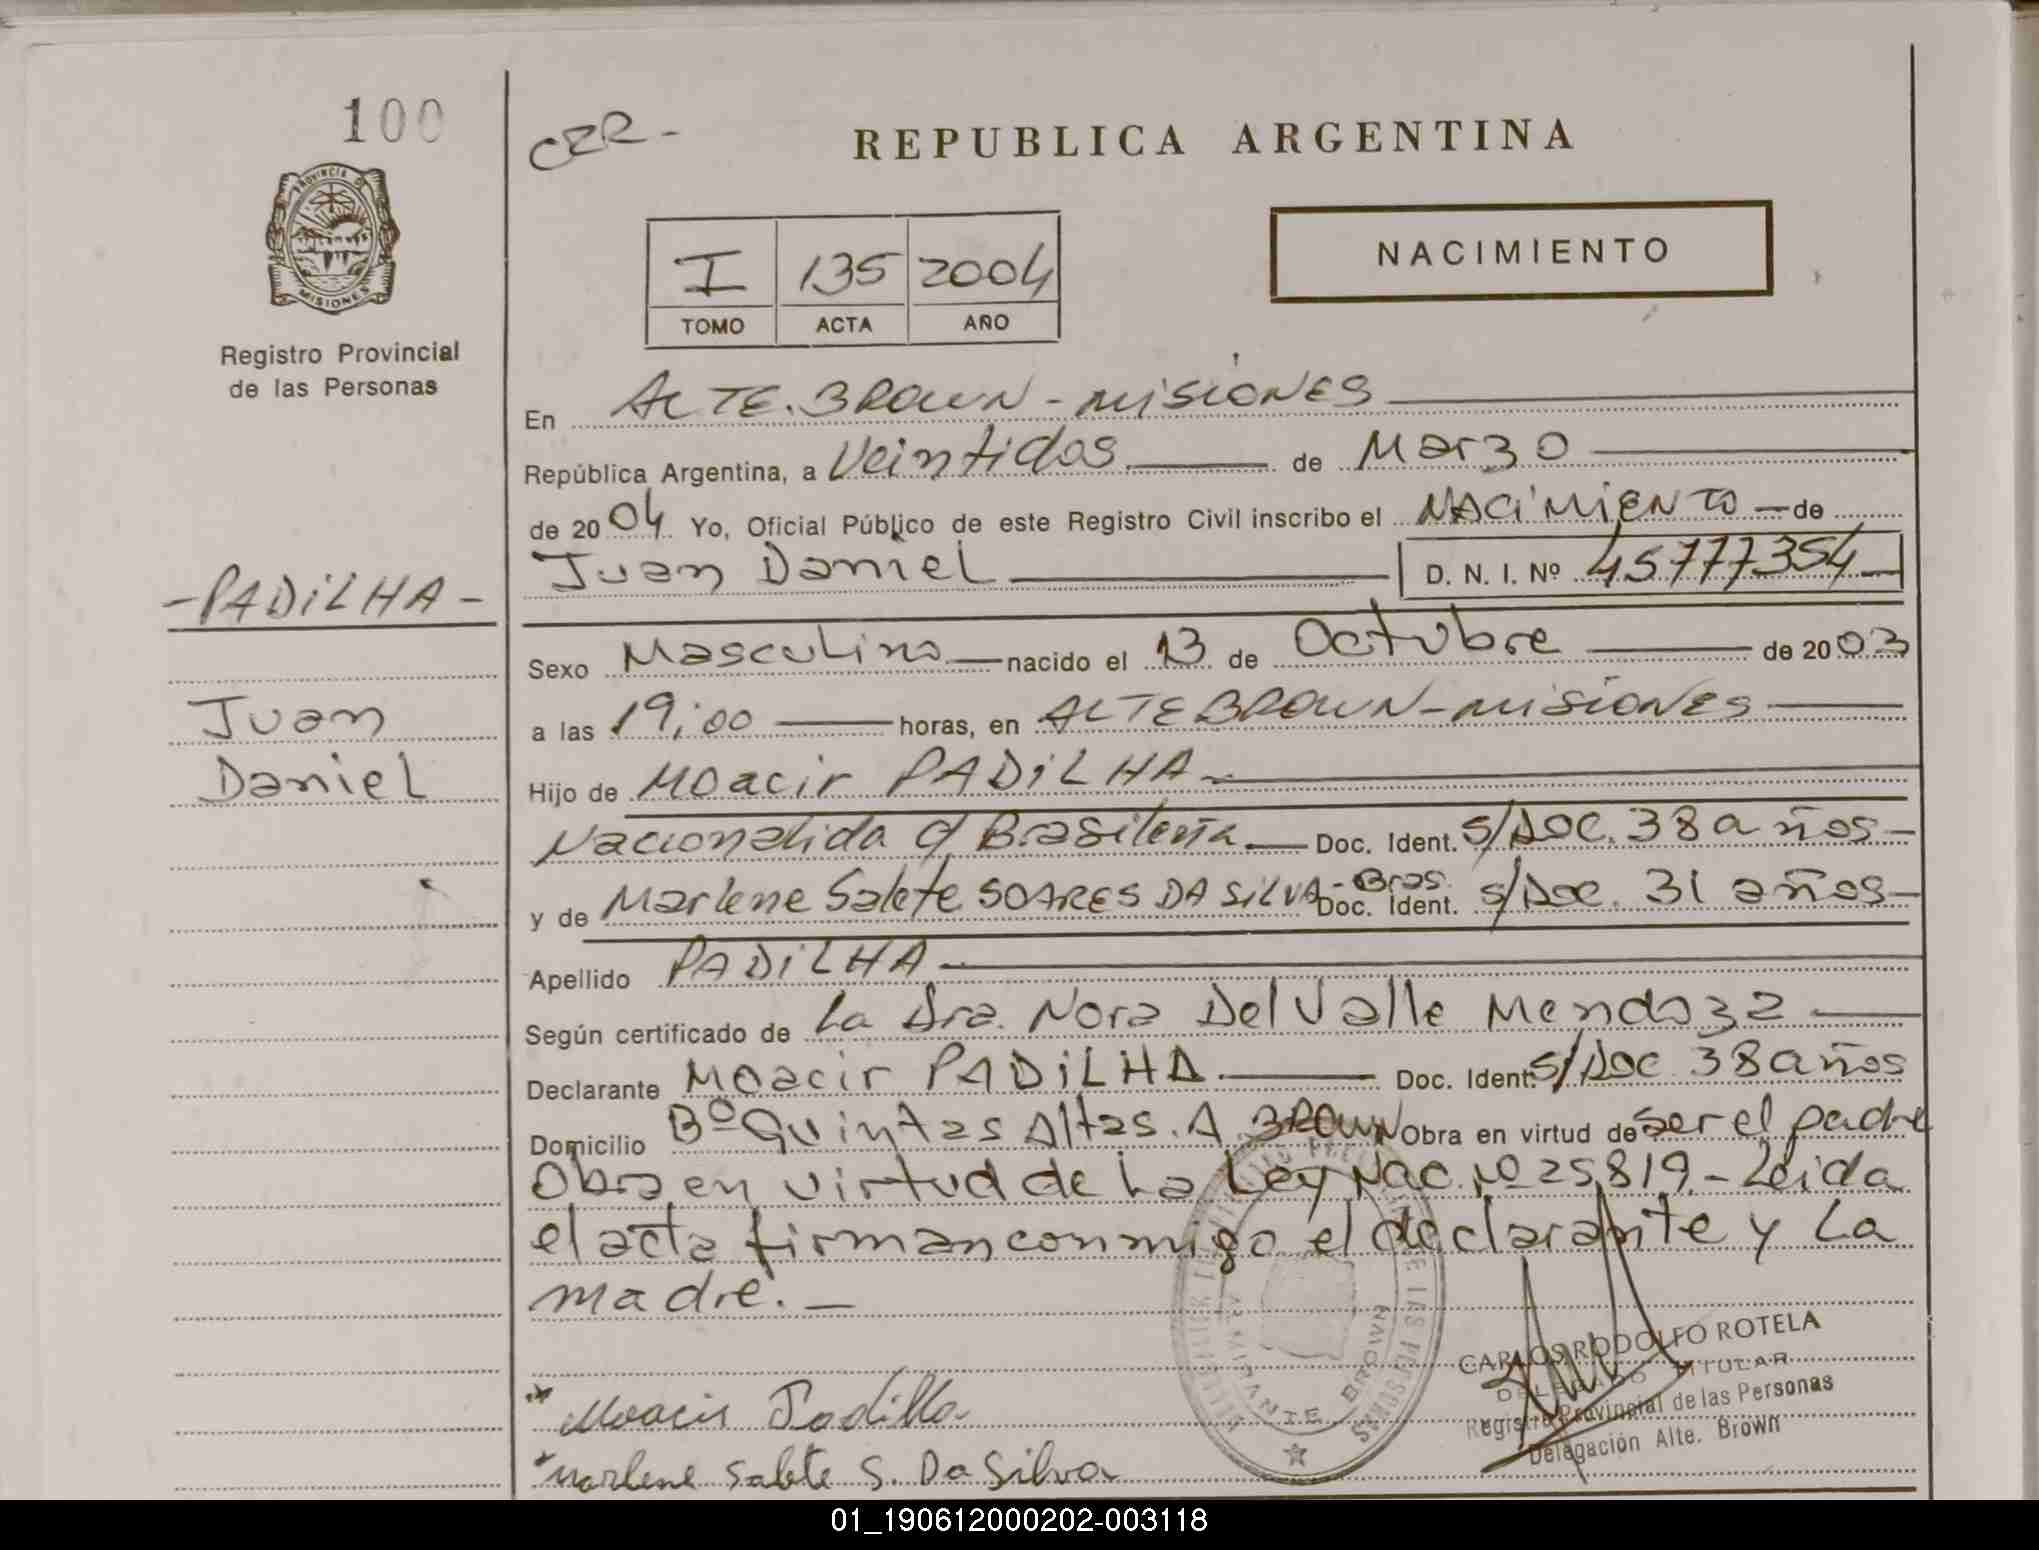 100
PROVINCIA DE
MISIONES
Registro Provincial
de las Personas
-PADiLHA-
Juan
Daniel
CER-
REPUBLICA ARGENTINA
I 135 2004
TOMO ACTA AÑO
NACIMIENTO
En ALTE. BROWN - MISIONES
República Argentina, a Veintidos de Marzo
de 2004 Yo, Oficial Público de este Registro Civil inscribo el NACIMIENTO - de
Juan Daniel D. N. I. Nº 45777354
Sexo Masculino nacido el 13 de Octubre de 2003
a las 19;00 horas, en ALTE BROWN - MISIONES
Hijo de Moacir PADiLHA
Nacionalida d Brasileña Doc. Ident. s/Doc. 38 años -
y de Marlene Salete SOARES DA SiLVA - Bras. Doc. Ident. s/Doc. 31 años -
Apellido PADiLHA
Según certificado de La Dra. Nora Del Valle Mendoza
Declarante Moacir PADiLHA Doc. Ident. s/Doc 38 años
Domicilio Bº Quintas Altas. A. BROWN Obra en virtud de ser el padre
Obra en virtud de La Ley Nac. Nº 25819.- Leida
el acta firman conmigo el declarante y La
madre. -
CARLOS RODOLFO ROTELA
DELEGADO TITULAR
Registro Provincial de las Personas
Delegación Alte. Brown
DE LAS PERSONAS
ALMIRANTE BROWN
Moacir Padilha
Marlene Salete S. Da Silva
01_190612000202-003118